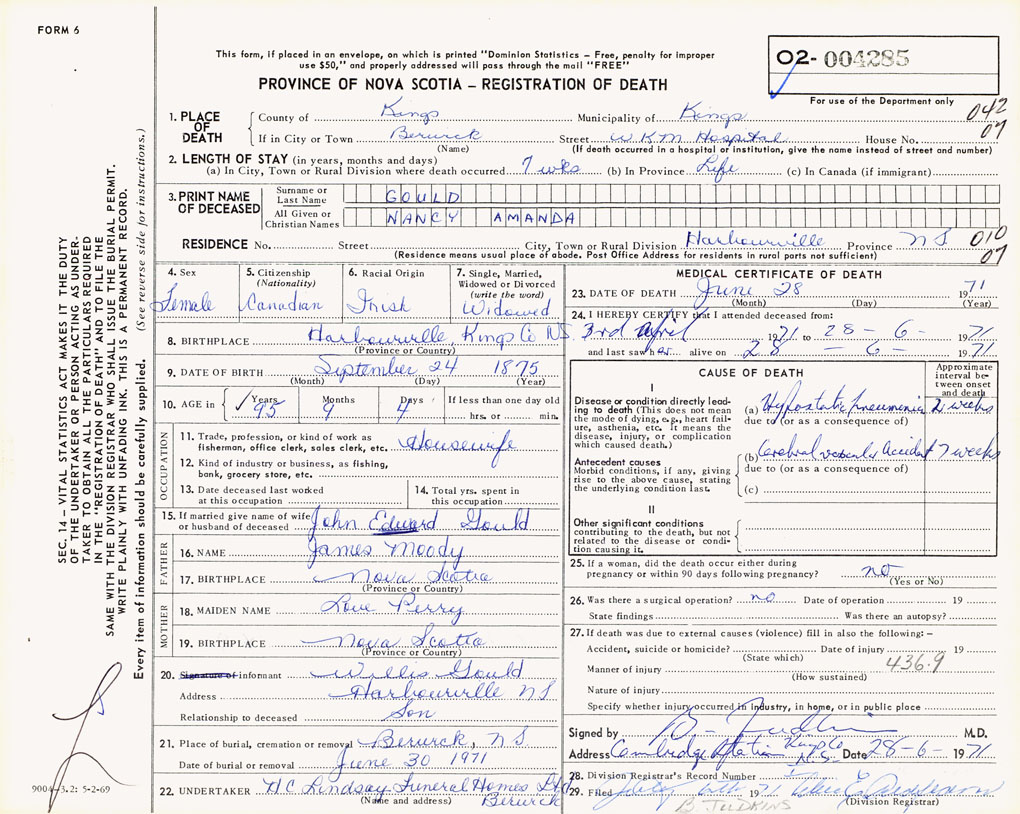 FORM 6
This form, if placed in an envelope, on which is printed "Dominion Statistics – Free, penalty for improper
use $50," and properly addressed will pass through the mail "FREE"
PROVINCE OF NOVA SCOTIA – REGISTRATION OF DEATH
02- 004285
For use of the Department only
042
07
1. PLACE OF DEATH
County of Kings Municipality of Kings
If in City or Town Berwick Street W.K.M Hospital House No.
(Name) (If death occurred in a hospital or institution, give the name instead of street and number)
2. LENGTH OF STAY (in years, months and days)
(a) In City, Town or Rural Division where death occurred 7 wks (b) In Province Life (c) In Canada (if immigrant)
3. PRINT NAME OF DECEASED
Surname or Last Name GOULD
All Given or Christian Names NANCY AMANDA
RESIDENCE No. Street City, Town or Rural Division Harbourville Province NS 010
07
(Residence means usual place of abode. Post Office Address for residents in rural parts not sufficient)
4. Sex Female
5. Citizenship (Nationality) Canadian
6. Racial Origin Irish
7. Single, Married, Widowed or Divorced (write the word) Widowed
8. BIRTHPLACE Harbourville, Kings Co NS.
(Province or Country)
9. DATE OF BIRTH September 24 1875
(Month) (Day) (Year)
10. AGE in Years 95 Months 9 Days 4 If less than one day old
hrs. or min.
OCCUPATION
11. Trade, profession, or kind of work as fisherman, office clerk, sales clerk, etc. Housewife
12. Kind of industry or business, as fishing, bank, grocery store, etc.
13. Date deceased last worked at this occupation
14. Total yrs. spent in this occupation
15. If married give name of wife or husband of deceased John Edward Gould
FATHER
16. NAME James Moody
17. BIRTHPLACE Nova Scotia
(Province or Country)
MOTHER
18. MAIDEN NAME Love Perry
19. BIRTHPLACE Nova Scotia
(Province or Country)
20. Signature of informant Willis Gould
Address Harbourville NS
Relationship to deceased Son
21. Place of burial, cremation or removal Berwick, NS
Date of burial or removal June 30 1971
22. UNDERTAKER H.C. Lindsay Funeral Homes Ltd
(Name and address) Berwick
MEDICAL CERTIFICATE OF DEATH
23. DATE OF DEATH June 28 1971
(Month) (Day) (Year)
24. I HEREBY CERTIFY that I attended deceased from:
3rd April 1971 to 28 – 6 – 1971
and last saw her alive on 28 – 6 – 1971
CAUSE OF DEATH
Approximate interval between onset and death
I
Disease or condition directly leading to death (This does not mean the mode of dying, e.g., heart failure, asthenia, etc. It means the disease, injury, or complication which caused death.)
(a) Hypostatic Pneumonia 2 weeks
due to (or as a consequence of)
Antecedent causes
Morbid conditions, if any, giving rise to the above cause, stating the underlying condition last.
(b) Cerebral vascular Accident 7 weeks
due to (or as a consequence of)
(c)
II
Other significant conditions
contributing to the death, but not related to the disease or condition causing it.
25. If a woman, did the death occur either during
pregnancy or within 90 days following pregnancy? no
(Yes or No)
26. Was there a surgical operation? no Date of operation 19
State findings Was there an autopsy?
27. If death was due to external causes (violence) fill in also the following: –
Accident, suicide or homicide? Date of injury 19
(State which)
436.9
Manner of injury
(How sustained)
Nature of injury
Specify whether injury occurred in industry, in home, or in public place
Signed by M.D.
Address Cambridge Station Kings Co N.S. Date 28-6- 1971
28. Division Registrar's Record Number
29. Filed July 1971
(Division Registrar)
B. JUDKINS
SEC. 14 – VITAL STATISTICS ACT MAKES IT THE DUTY
OF THE UNDERTAKER OR PERSON ACTING AS UNDER-
TAKER TO OBTAIN ALL THE PARTICULARS REQUIRED
IN THE "REGISTRATION OF DEATH" AND TO FILE THE
SAME WITH THE DIVISION REGISTRAR WHO SHALL ISSUE THE BURIAL PERMIT.
WRITE PLAINLY WITH UNFADING INK. THIS IS A PERMANENT RECORD.
Every item of information should be carefully supplied. (See reverse side for instructions.)
9004-3.2: 5-2-69